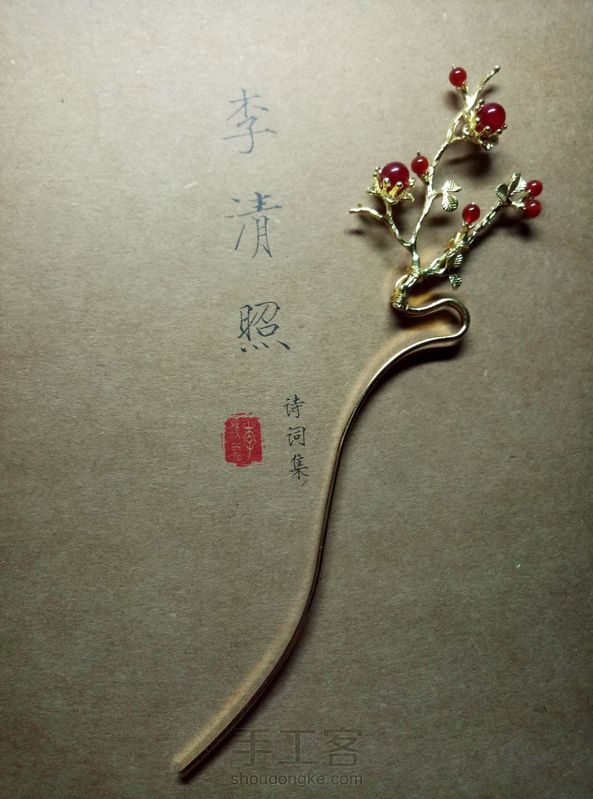 李清照
诗词集
手工客
shougongke.com